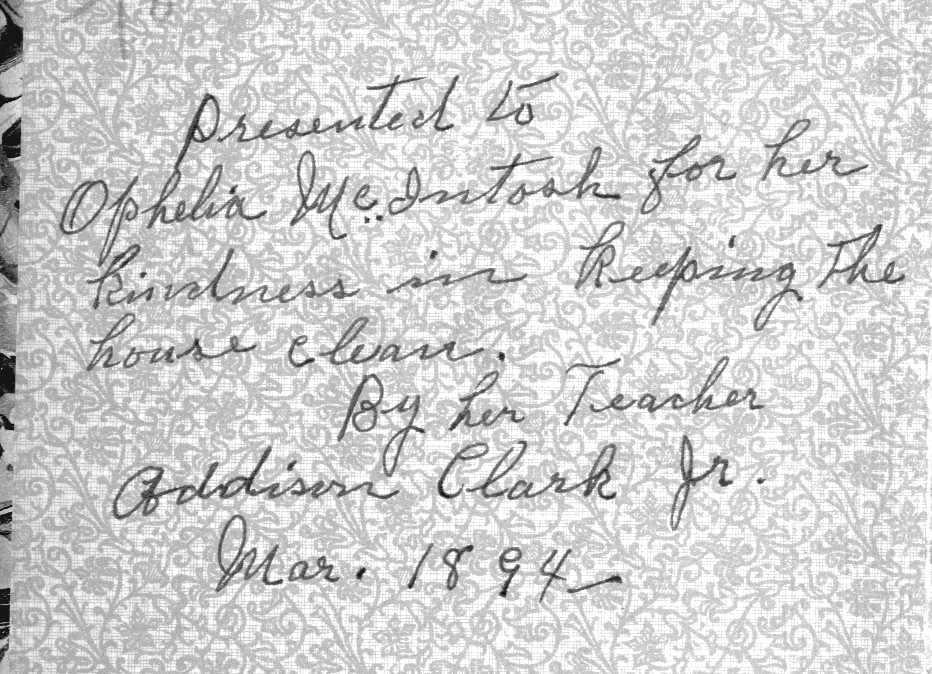 Presented to
Ophelia McIntosh for her
kindness in keeping the
house clean.
By her Teacher
Addison Clark Jr.
Mar. 1894